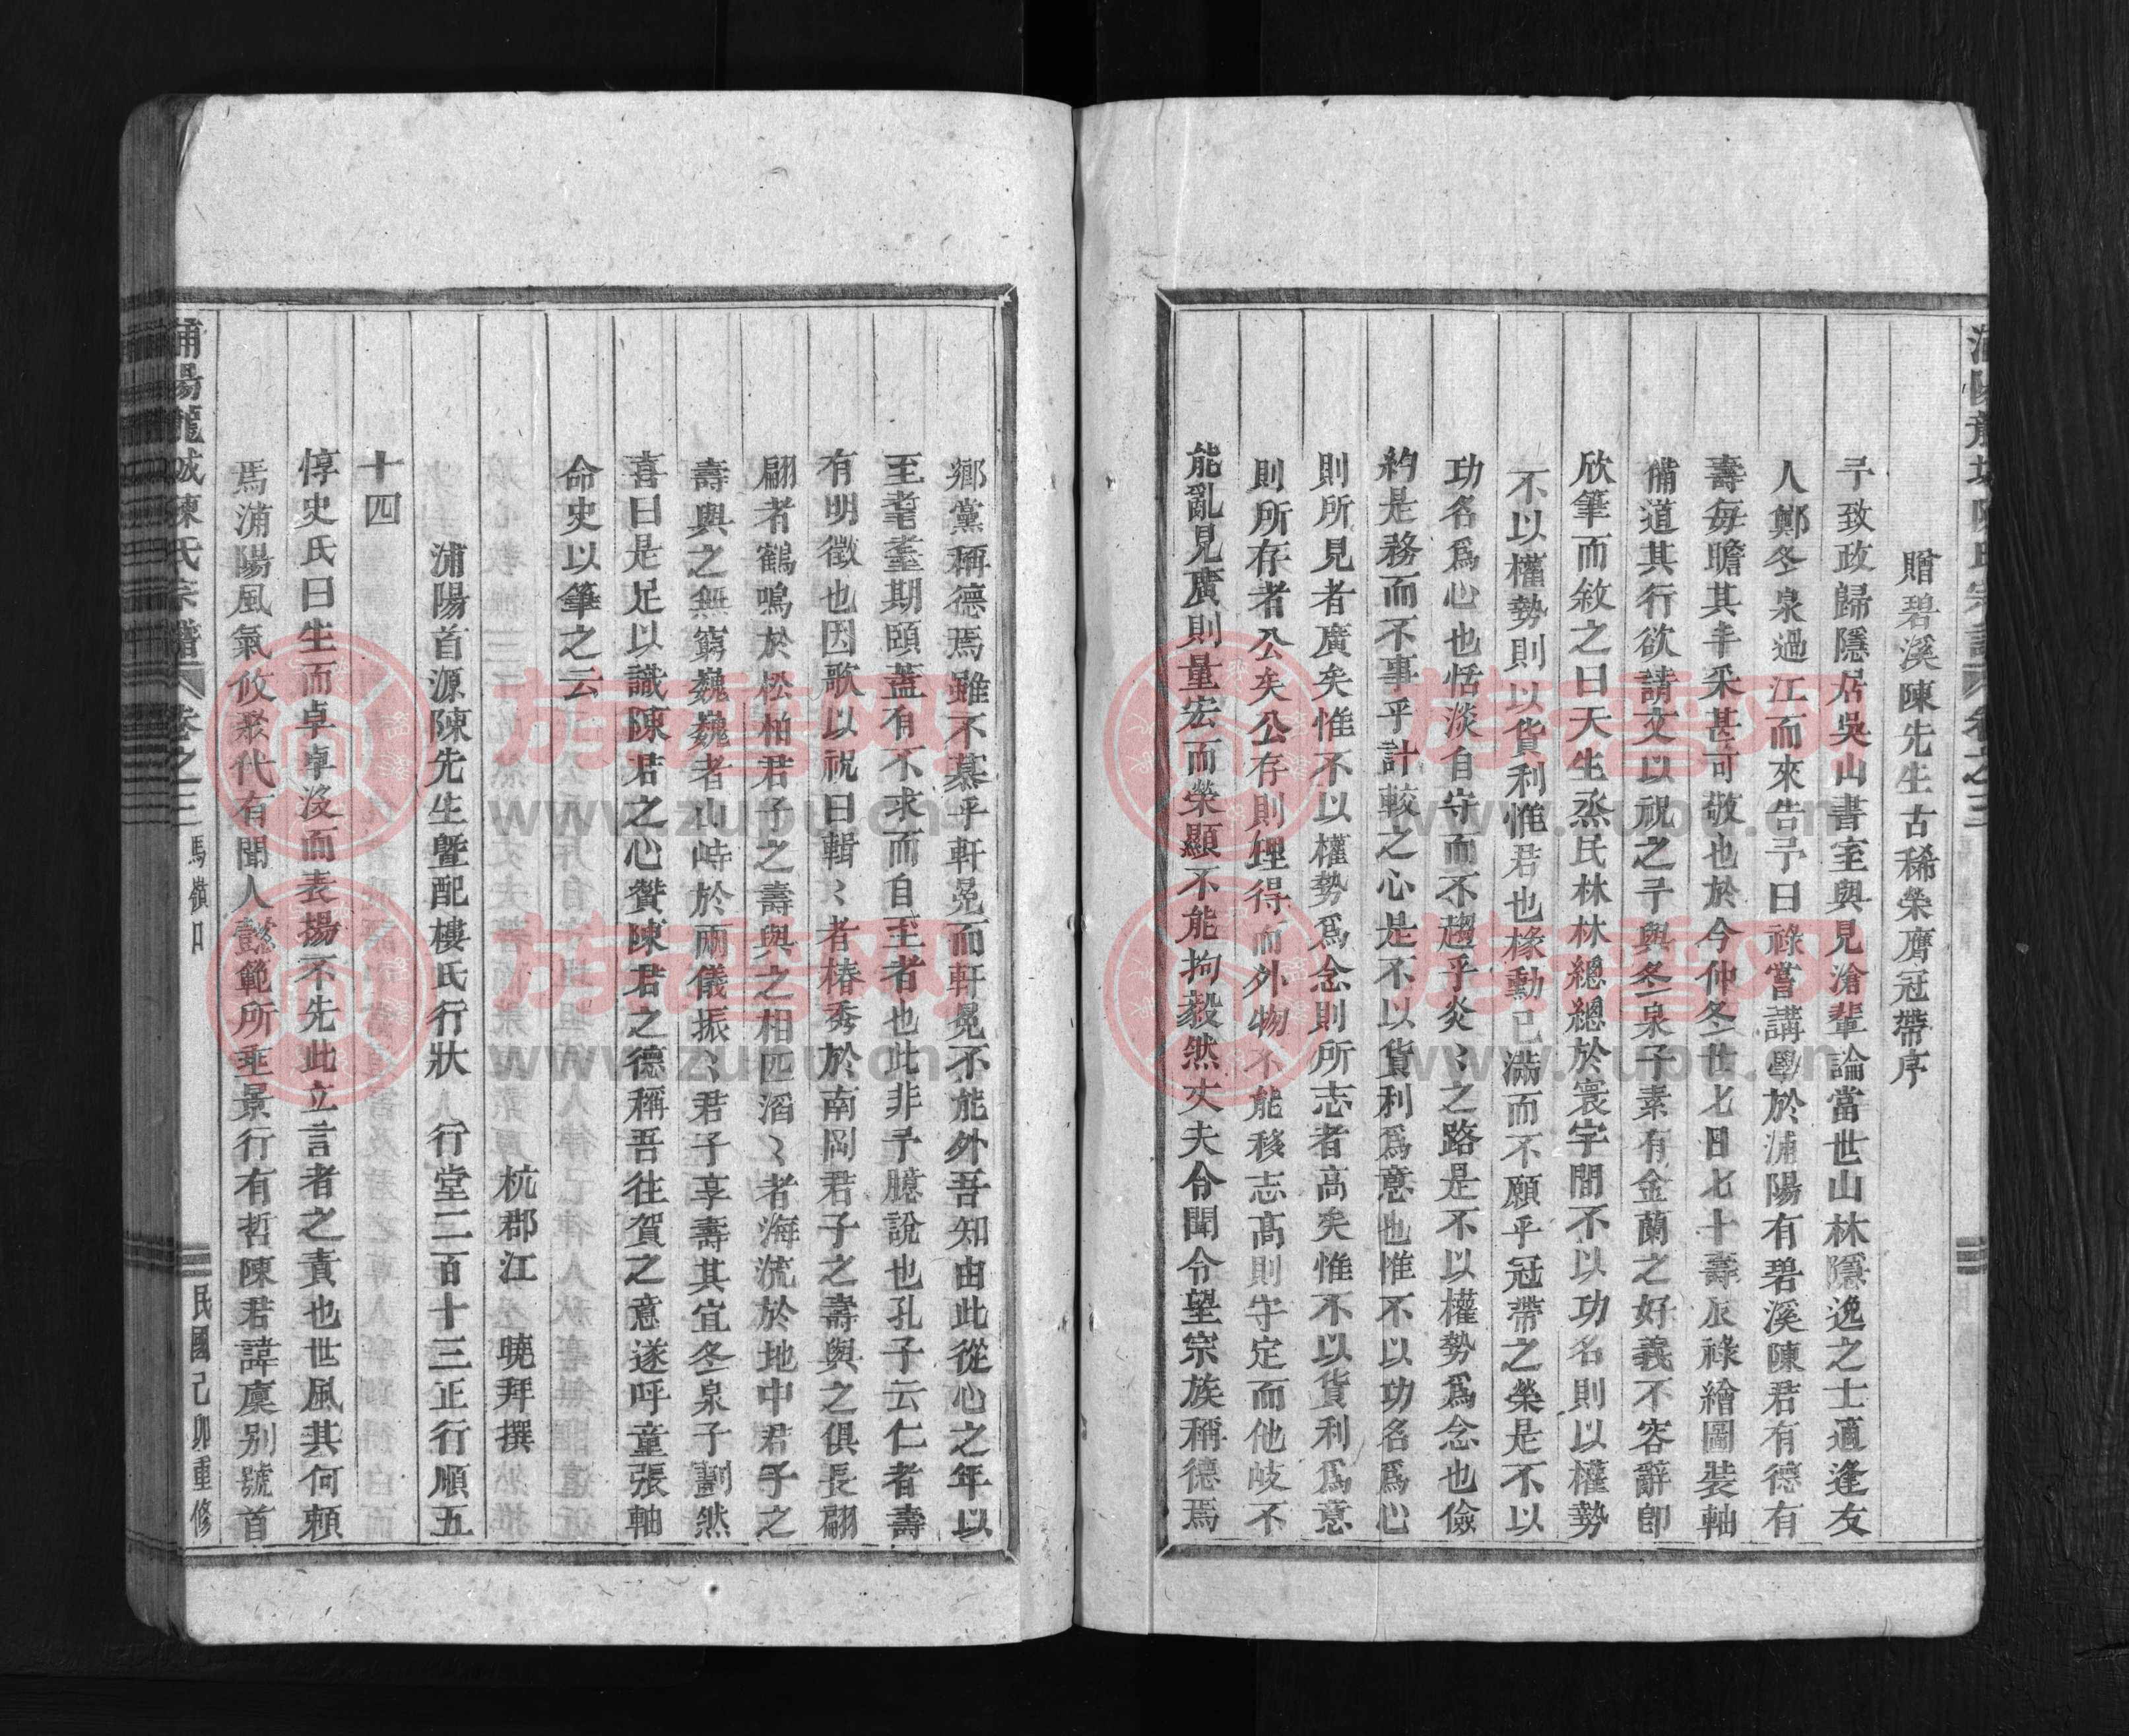 贈碧溪陳先生古稀榮膺冠帶序
予致政歸隱居吳山書室與見滄輩論當世山林隱逸之士適逢友
人鄭冬泉過江而來告予曰祿嘗講學於浦陽有碧溪陳君有德有
壽每瞻其丰采甚可敬也於今仲冬廿七日七十壽辰祿繪圖裝軸
備道其行欲請文以祝之予與冬泉子素有金蘭之好義不容辭卽
欣筆而敘之曰天生烝民林林總總於寰宇間不以功名則以權勢
不以權勢則以貨利惟君也椽勳已滿而不願乎冠帶之榮是不以
功名爲心也恬淡自守而不趨乎炎〻之路是不以權勢爲念也儉
約是務而不事乎計較之心是不以貨利爲意也惟不以功名爲心
則所見者廣矣惟不以權勢爲念則所志者高矣惟不以貨利爲意
則所存者公矣公存則理得而外物不能移志高則守定而他岐不
能亂見廣則量宏而榮顯不能拘毅然丈夫令聞令望宗族稱德焉
鄉黨稱德焉雖不慕乎軒冕而軒冕不能外吾知由此從心之年以
至耄耋期頤蓋有不求而自至者也此非予臆說也孔子云仁者壽
有明徵也因歌以祝曰輯〻者椿秀於南岡君子之壽與之俱長翩
翩者鶴鳴於松柏君子之壽與之相匹滔〻者海流於地中君子之
壽與之無窮巍巍者山峙於兩儀振〻君子享壽其宜冬泉子劃然
喜曰是足以識陳君之心贊陳君之德稱吾往賀之意遂呼童張軸
命史以筆之云
杭郡江　曉拜撰
浦陽首源陳先生曁配樓氏行狀　行堂二百十三正行順五
十四
惇史氏曰生而卓卓沒而表揚不先此立言者之責也世風其何賴
焉浦陽風氣攸聚代有聞人懿範所垂景行有哲陳君諱廩别號首
浦陽龍城陳氏宗譜　卷之三　馬嶺口　民國己卯重修